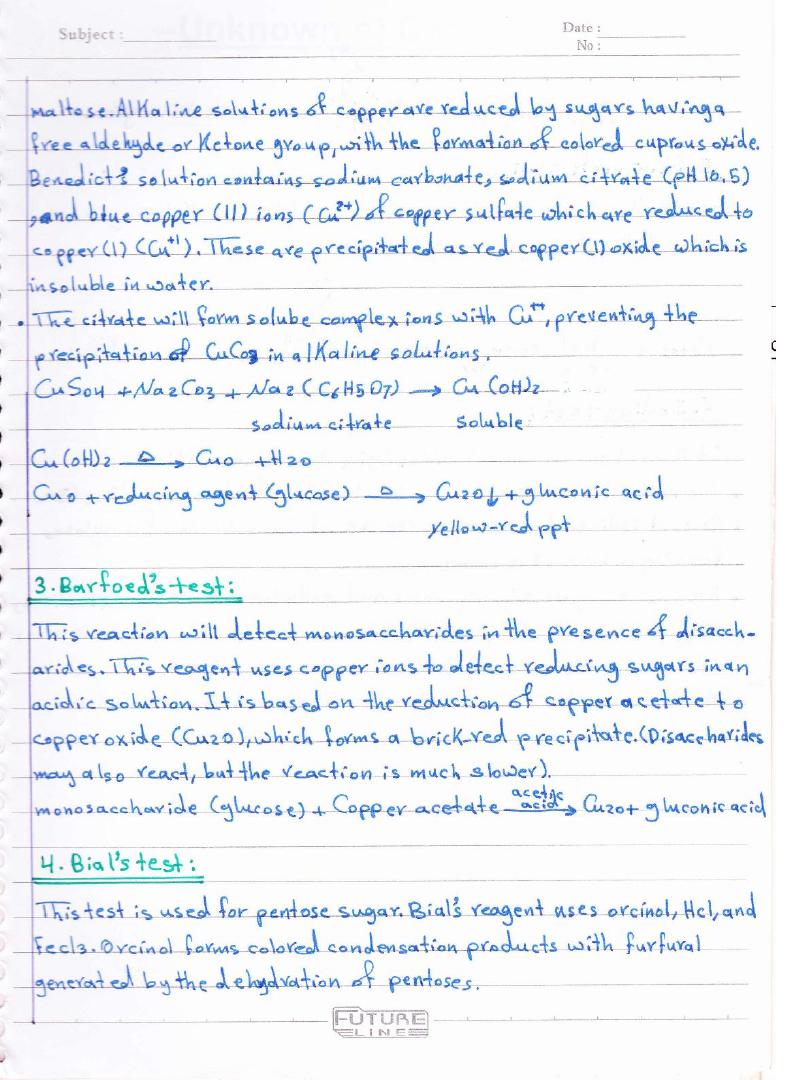 Subject :
Date :
No :
maltose. Alkaline solutions of copper are reduced by sugars having a
free aldehyde or Ketone group, with the formation of colored cuprous oxide.
Benedict's solution contains sodium carbonate, sodium citrate (pH 10.5)
, and blue copper (II) ions (Cu²⁺) of copper sulfate which are reduced to
copper (I) (Cu⁺¹). These are precipitated as red copper (I) oxide which is
insoluble in water.
• The citrate will form soluble complex ions with Cu⁺⁺, preventing the
precipitation of CuCO3 in alkaline solutions.
CuSO4 + Na2CO3 + Na2 (C6H5O7) → Cu(OH)2
sodium citrate soluble
Cu(OH)2 —Δ→ CuO + H2O
CuO + reducing agent (glucose) —Δ→ Cu2O↓ + gluconic acid
yellow-red ppt
3. Barfoed's test:
This reaction will detect monosaccharides in the presence of disacch-
arides. This reagent uses copper ions to detect reducing sugars in an
acidic solution. It is based on the reduction of copper acetate to
copper oxide (Cu2O), which forms a brick-red precipitate. (Disaccharides
may also react, but the reaction is much slower).
monosaccharide (glucose) + Copper acetate —acetic acid→ Cu2O + gluconic acid
4. Bial's test:
This test is used for pentose sugar. Bial's reagent uses orcinol, Hcl, and
Fecl3. Orcinol forms colored condensation products with furfural
generated by the dehydration of pentoses.
FUTURE
LINE